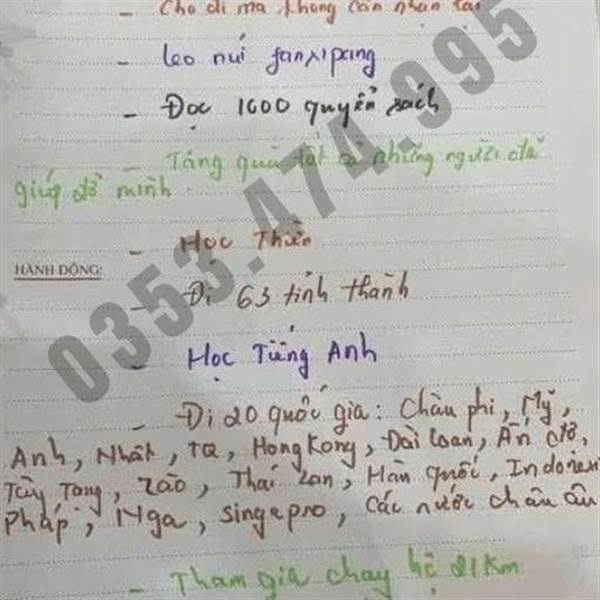 - Cho đi mà không cần nhận lại
- leo núi fanxipang
- Đọc 1000 quyển sách
- Tặng quà tất cả những người đã
giúp đỡ mình.
- Học Thiền
HÀNH ĐỘNG:
- Đi 63 tỉnh thành
- Học Tiếng Anh
- Đi 20 quốc gia: Châu phi, Mỹ,
Anh, Nhật, TQ, HongKong, Đài Loan, Ấn độ,
Tây Tạng, Lào, Thái Lan, Hàn quốc, Indonexi
Pháp, Nga, singapro, các nước châu âu
- Tham gia chạy bộ 21Km
0353.474.995